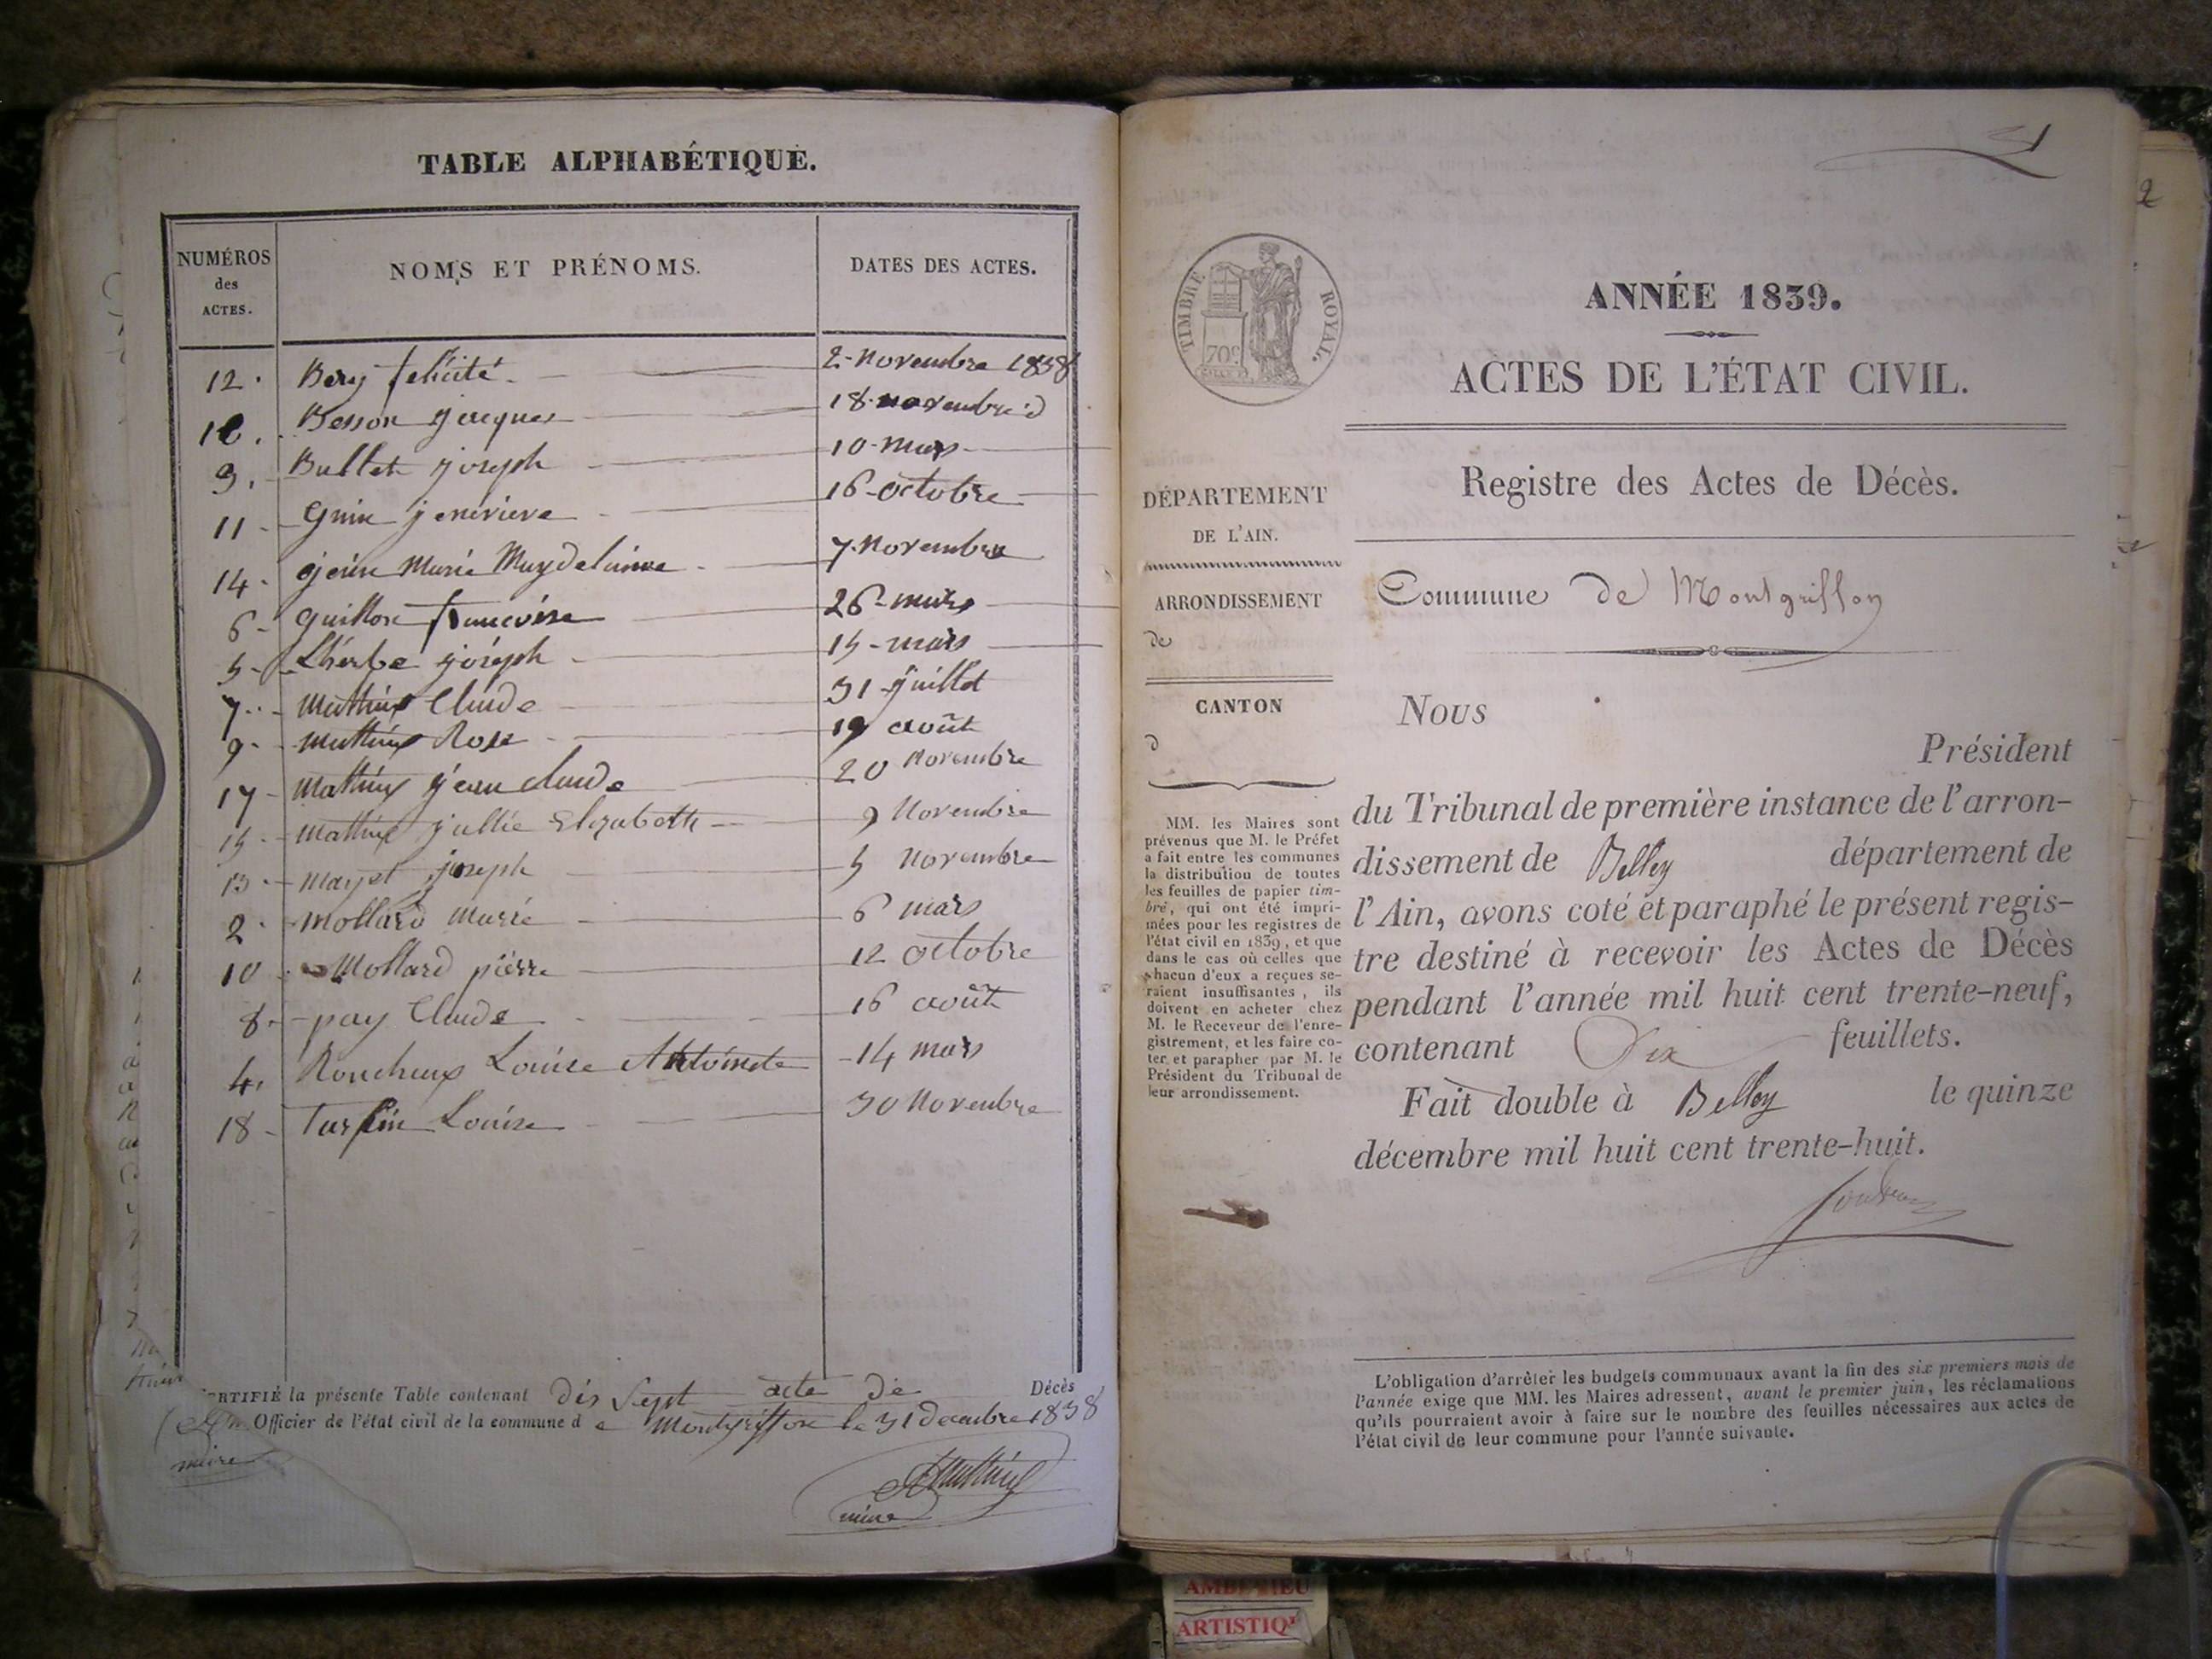 TABLE ALPHABÉTIQUE.
NUMÉROS des ACTES. NOMS ET PRÉNOMS. DATES DES ACTES.
12. Bery félicité 2 Novembre 1838
Besson jacques 18 novembre d
9. Bullet joseph 10 Mars
11 jenevieve 16 octobre
14 Marie Magdelaine 7 Novembre
6 Guillon francoise 26 mars
5 Lherbe joseph 15 mars
7 Mathieux Claude 31 juillet
9 Mathieux Rose 19 août
17 Mathieux jean claude 20 Novembre
15 Mathieux jullie Elizabeth 9 Novembre
13 Mayet joseph 5 Novembre
2 Mollard Marie 6 mars
10 Mollard pièrre 12 octobre
8 pay Claude 16 août
4. Roncheux Louise Antoinete 14 mars
18 Turpin Louise 30 Novembre
CERTIFIÉ la présente Table contenant dix Sept acte de Décès
Officier de l'état civil de la commune de Montgriffon le 31 decembre 1838
maire
AMathieux
maire
ANNÉE 1839.
TIMBRE ROYAL.
70c
ACTES DE L'ÉTAT CIVIL.
Registre des Actes de Décès.
DÉPARTEMENT
DE L'AIN.
ARRONDISSEMENT
de
CANTON
d
Commune de Montgriffon
MM. les Maires sont
prévenus que M. le Préfet
a fait entre les communes
la distribution de toutes
les feuilles de papier tim-
bré, qui ont été impri-
mées pour les registres de
l'état civil en 1839, et que
dans le cas où celles que
chacun d'eux a reçues se-
raient insuffisantes, ils
doivent en acheter chez
M. le Receveur de l'enre-
gistrement, et les faire co-
ter et parapher par M. le
Président du Tribunal de
leur arrondissement.
Nous
Président
du Tribunal de première instance de l'arron-
dissement de Belley département de
l'Ain, avons coté et paraphé le présent regis-
tre destiné à recevoir les Actes de Décès
pendant l'année mil huit cent trente-neuf,
contenant Six feuillets.
Fait double à Belley le quinze
décembre mil huit cent trente-huit.
L'obligation d'arrêter les budgets communaux avant la fin des six premiers mois de
l'année exige que MM. les Maires adressent, avant le premier juin, les réclamations
qu'ils pourraient avoir à faire sur le nombre des feuilles nécessaires aux actes de
l'état civil de leur commune pour l'année suivante.
2
AMBERIEU
ARTISTIQ